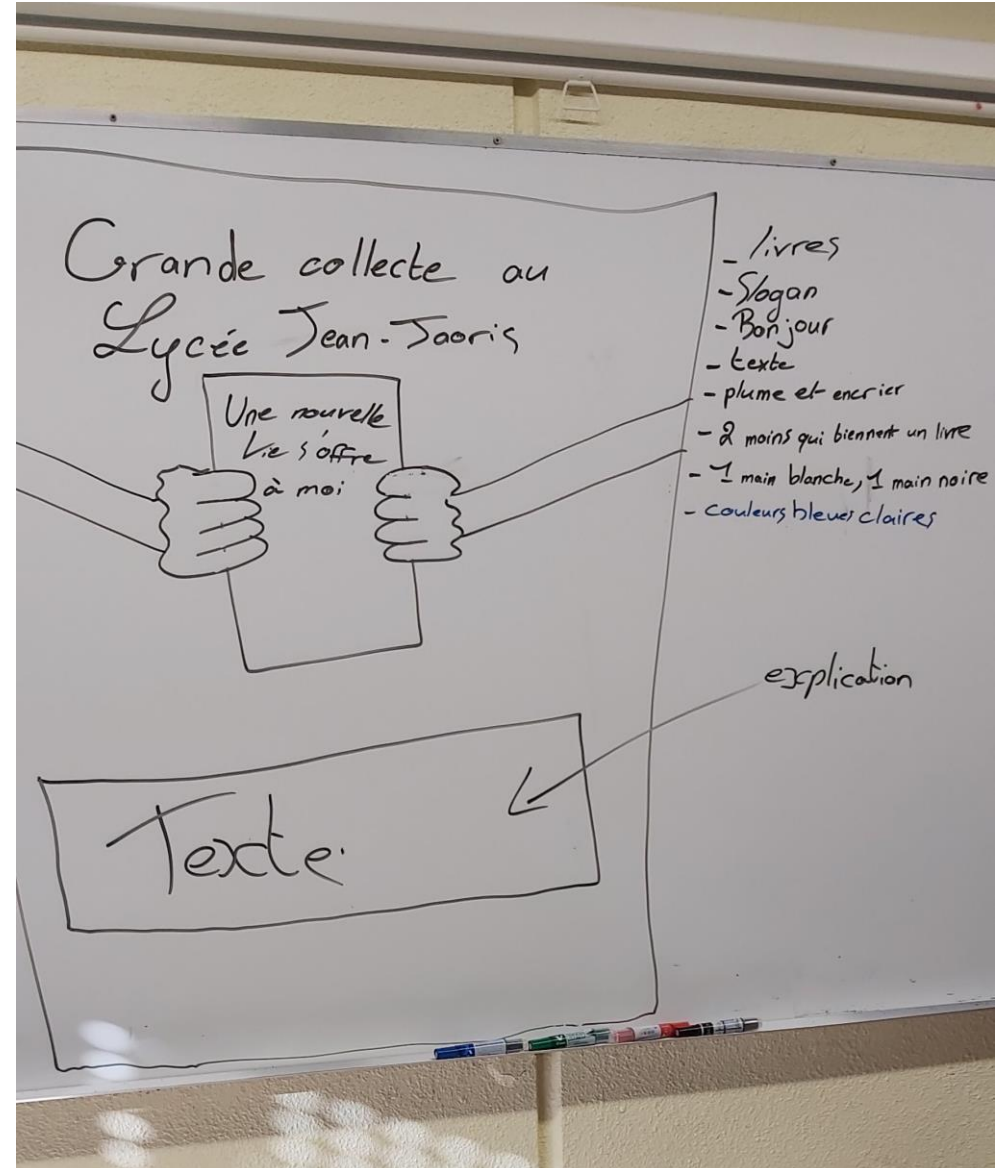 Grande collecte au
Lycée Jean-Jaoris
Une nouvelle
Vie s'offre
à moi
Texte
- livres
- Slogan
- Bonjour
- texte
- plume et encrier
- 2 mains qui tiennent un livre
- 1 main blanche, 1 main noire
- couleurs bleues claires
explication